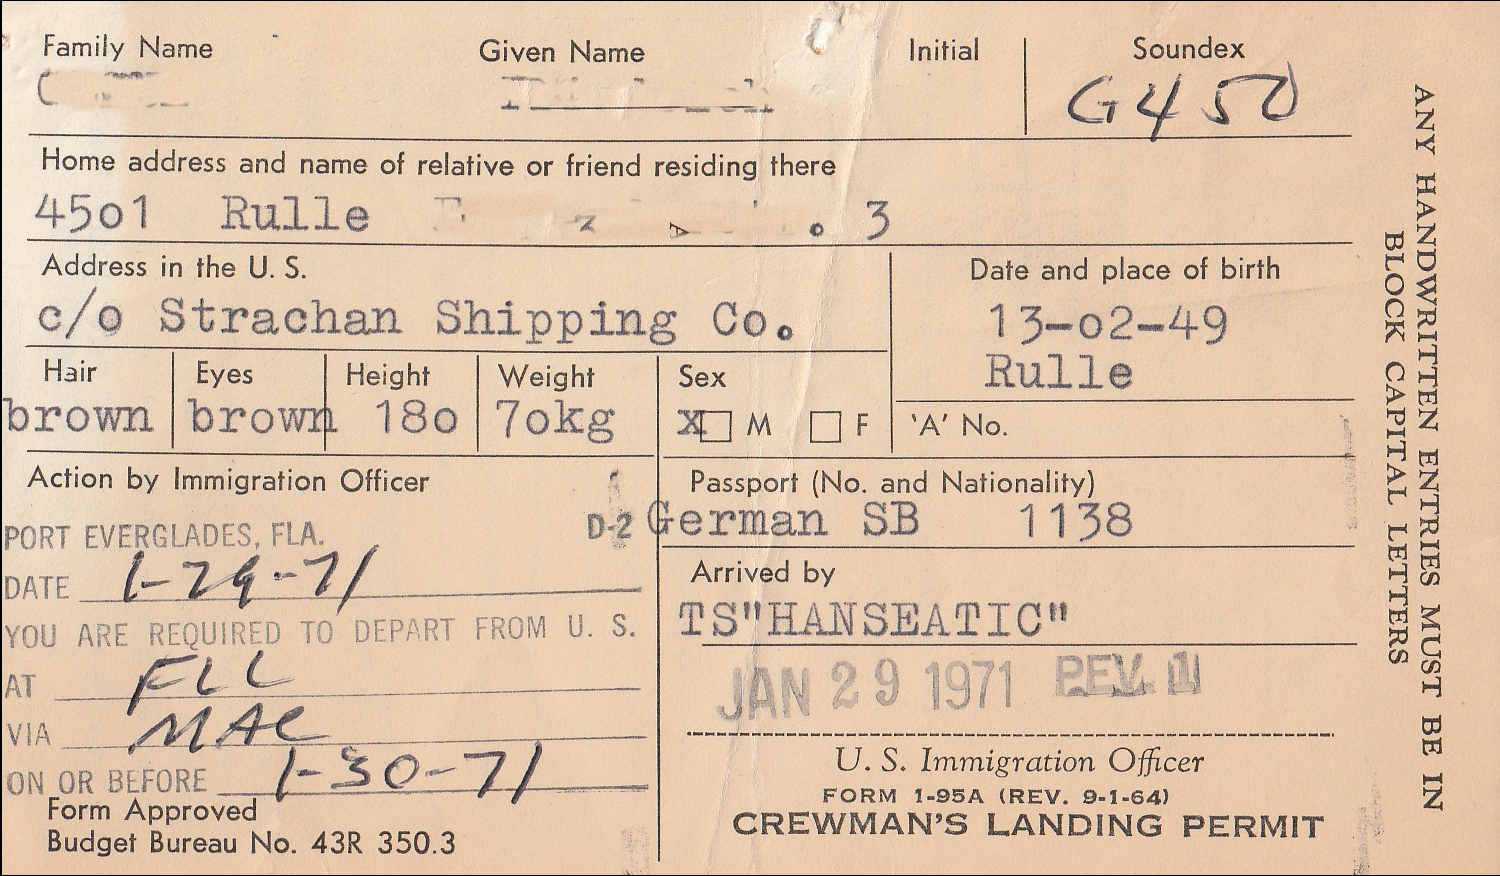 Family Name Given Name Initial Soundex
G450
Home address and name of relative or friend residing there
45o1 Rulle . 3
Address in the U. S.
c/o Strachan Shipping Co.
Date and place of birth
13-o2-49
Rulle
Hair Eyes Height Weight Sex
brown brown 18o 7okg X M F
'A' No.
Action by Immigration Officer
PORT EVERGLADES, FLA. D-2
DATE 1-29-71
YOU ARE REQUIRED TO DEPART FROM U. S.
AT FLL
VIA MAC
ON OR BEFORE 1-30-71
Form Approved
Budget Bureau No. 43R 350.3
Passport (No. and Nationality)
German SB 1138
Arrived by
TS"HANSEATIC"
JAN 29 1971 PEV. 1
U. S. Immigration Officer
FORM 1-95A (REV. 9-1-64)
CREWMAN'S LANDING PERMIT
ANY HANDWRITTEN ENTRIES MUST BE IN
BLOCK CAPITAL LETTERS